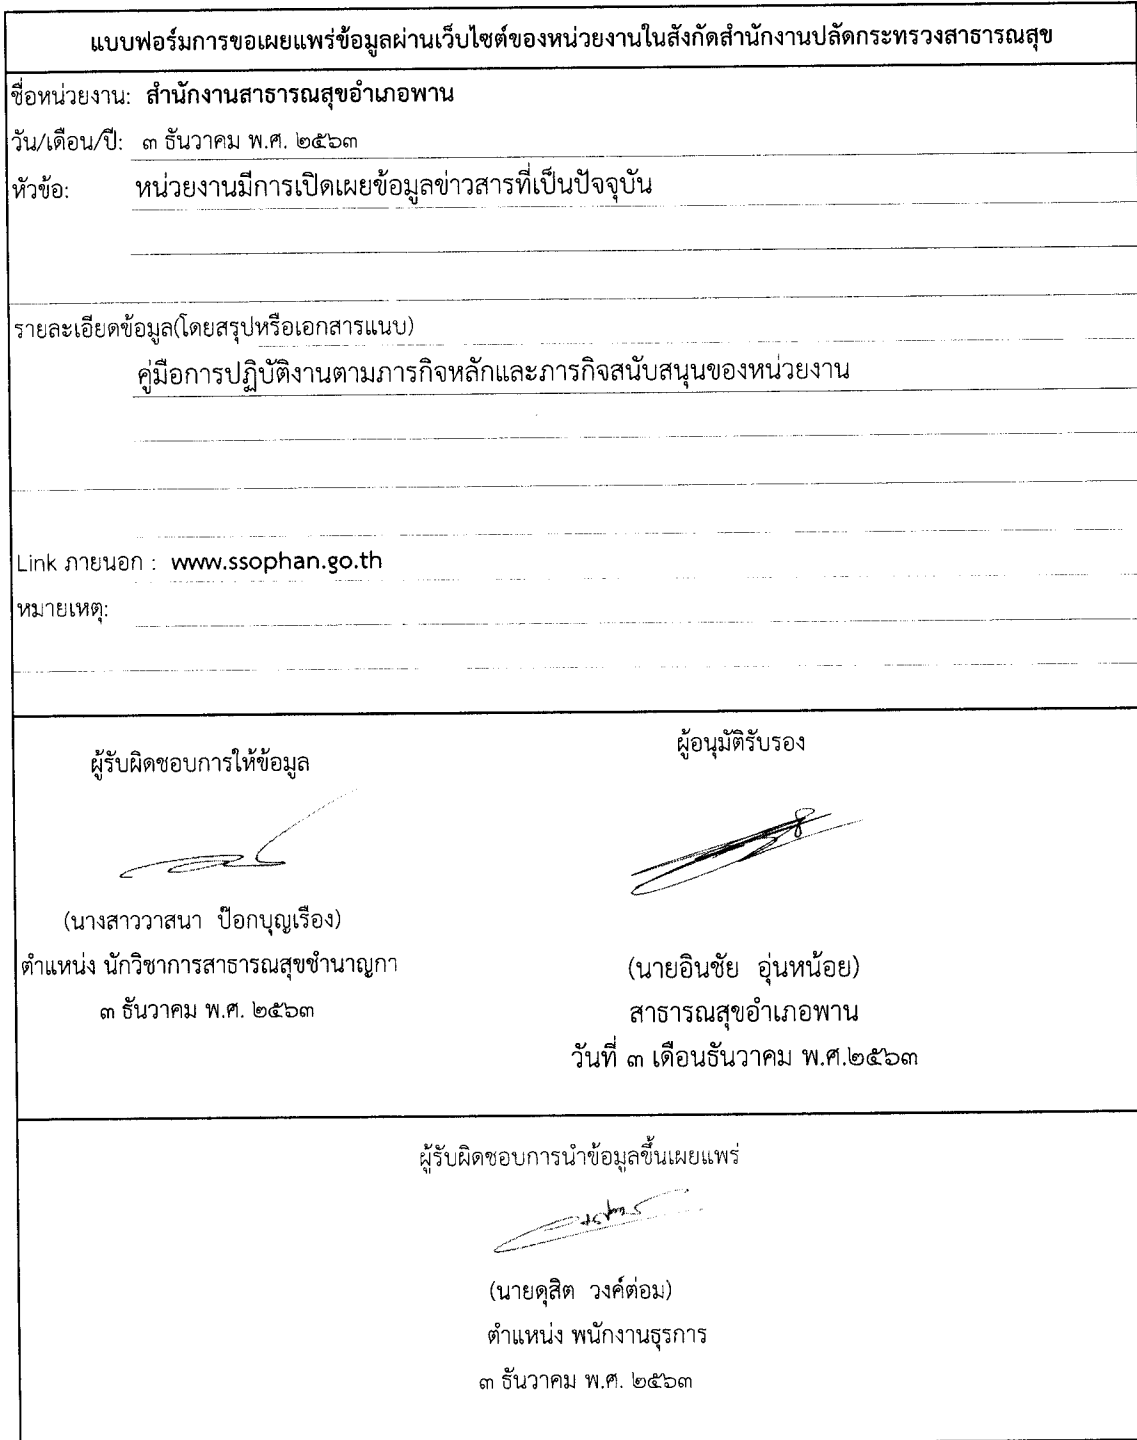 แบบฟอร์มการขอเผยแพร่ข้อมูลผ่านเว็บไซต์ของหน่วยงานในสังกัดสำนักงานปลัดกระทรวงสาธารณสุข
ชื่อหน่วยงาน: สำนักงานสาธารณสุขอำเภอพาน
วัน/เดือน/ปี: ๓ ธันวาคม พ.ศ. ๒๕๖๓
หัวข้อ: หน่วยงานมีการเปิดเผยข้อมูลข่าวสารที่เป็นปัจจุบัน
รายละเอียดข้อมูล(โดยสรุปหรือเอกสารแนบ)
คู่มือการปฏิบัติงานตามภารกิจหลักและภารกิจสนับสนุนของหน่วยงาน
Link ภายนอก : www.ssophan.go.th
หมายเหตุ:
ผู้รับผิดชอบการให้ข้อมูล
(นางสาววาสนา ป๊อกบุญเรือง)
ตำแหน่ง นักวิชาการสาธารณสุขชำนาญกา
๓ ธันวาคม พ.ศ. ๒๕๖๓
ผู้อนุมัติรับรอง
(นายอินชัย อุ่นหน้อย)
สาธารณสุขอำเภอพาน
วันที่ ๓ เดือนธันวาคม พ.ศ.๒๕๖๓
ผู้รับผิดชอบการนำข้อมูลขึ้นเผยแพร่
(นายดุสิต วงค์ต่อม)
ตำแหน่ง พนักงานธุรการ
๓ ธันวาคม พ.ศ. ๒๕๖๓